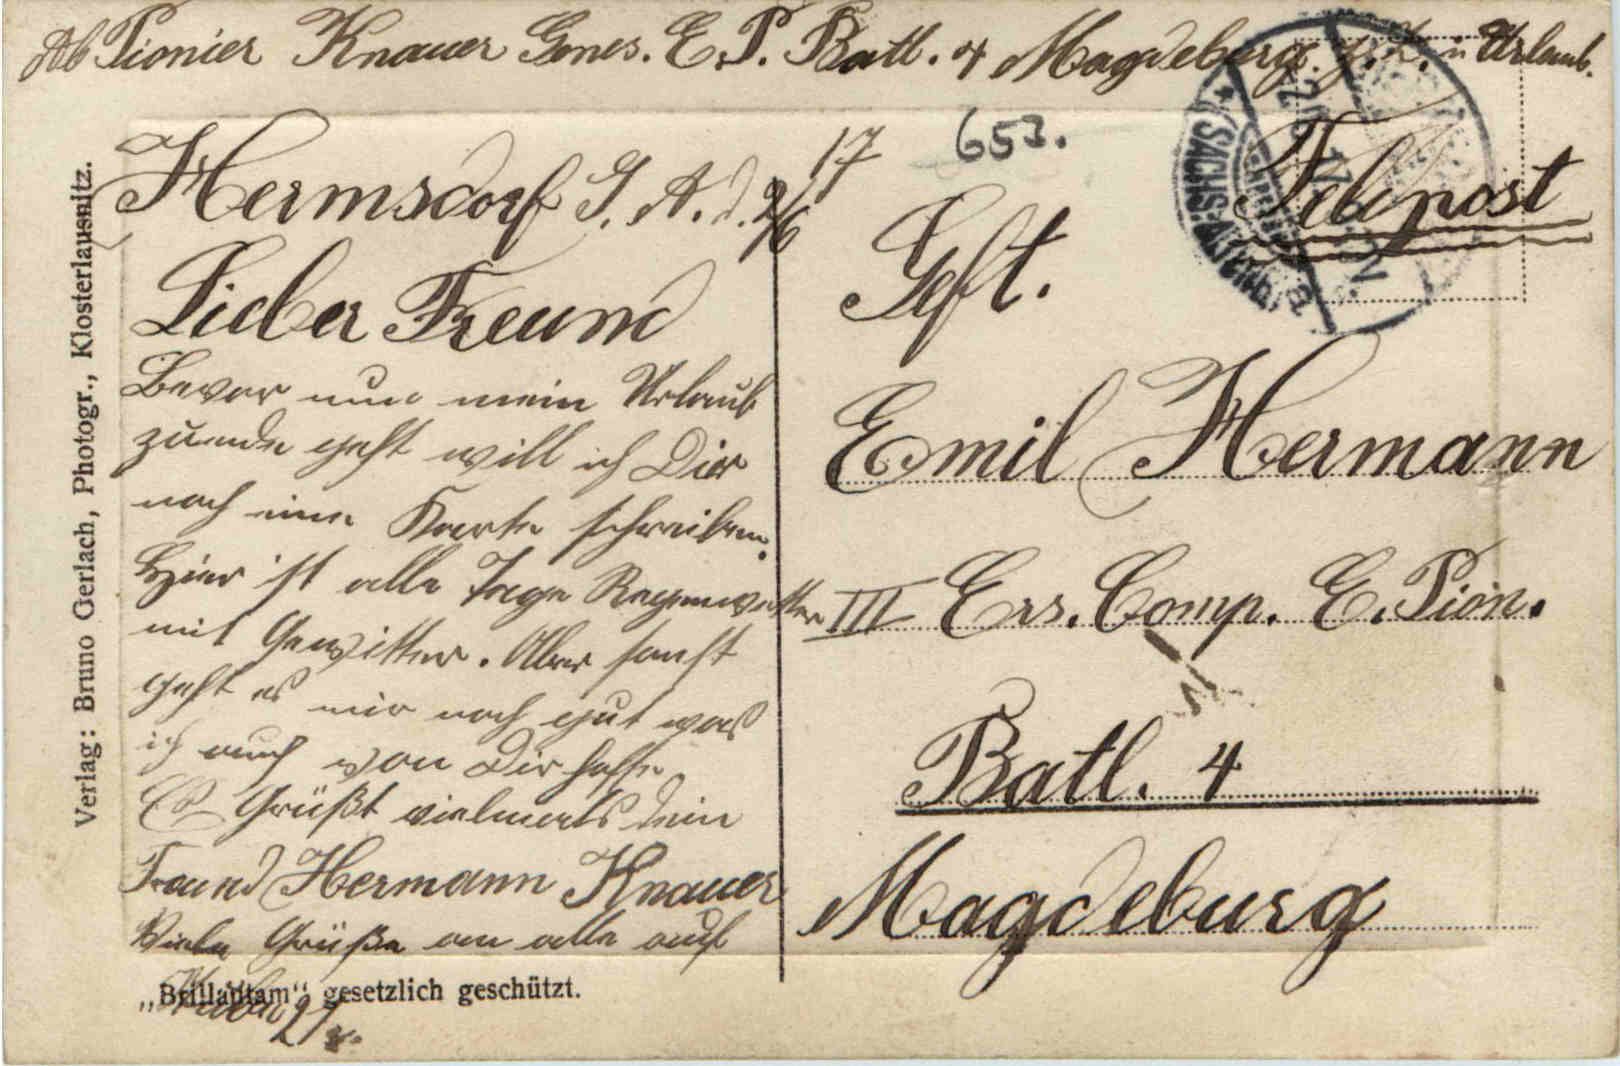 Ab Pionier Knauer Genes. E. P. Batl. 4 Magdeburg. z. Z. in Urlaub.
653.
Feldpost
Hermsdorf S. A. d. 2/6 17
Lieber Freund
Bevor nun mein Urlaub
zuende geht will ich Dir
noch eine Karte schreiben.
Hier ist alle Tage Regenwetter
mit Gewitter. Aber sonst
geht es mir noch gut was
ich auch von Dir hoffe
Es Grüßt vielmals Dein
Freund Hermann Knauer
Viele Grüße an alle auf
Stube 27
Geft.
Emil Hermann
III Ers. Comp. E. Pion.
Batl. 4
Magdeburg
(SACHS. ALTENBURG)
Verlag: Bruno Gerlach, Photogr., Klosterlausnitz.
„Brillantam“ gesetzlich geschützt.